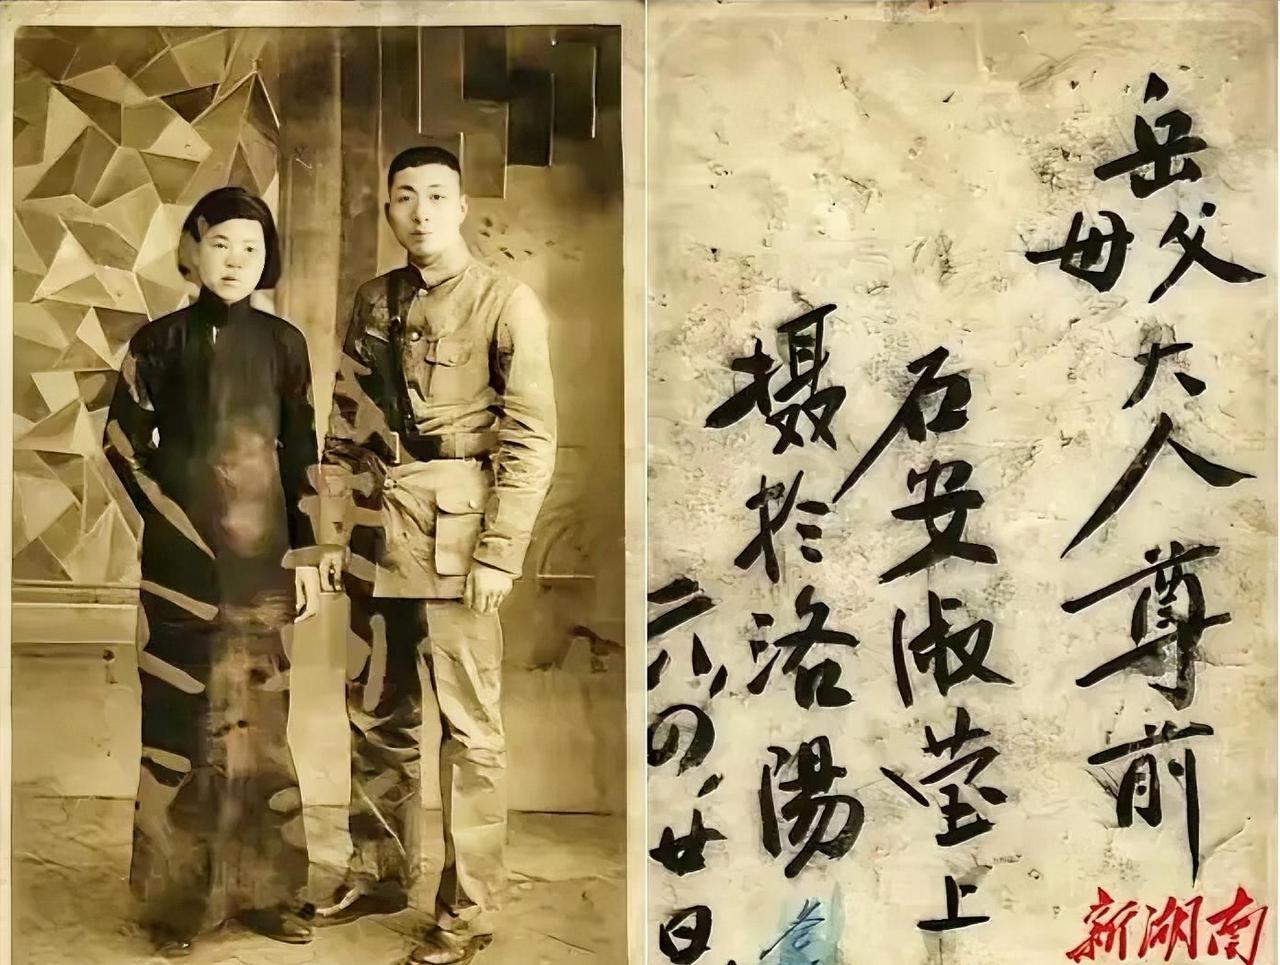 岳父母大人尊前
石安淑莹上
摄於洛陽
二八、四、廿日、
新湖南